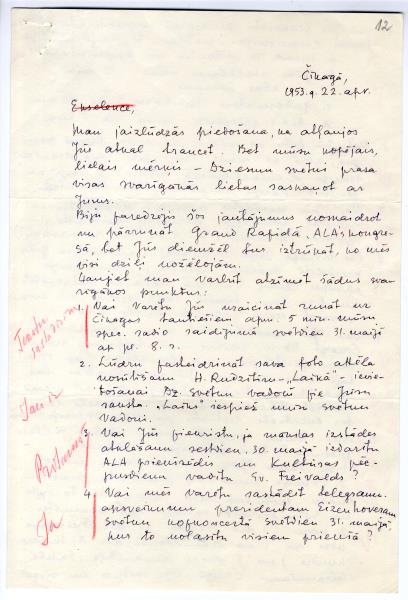 12
Čikagā,
1953.g. 22. apr.
Ekselence,
Man jāizlūdzās piedošana, ka atļaujos
Jūs atkal traucēt. Bet mūsu kopējais,
lielais mērķis – Dziesmu svētki prasa
visas svarīgākās lietas saskaņot ar
Jums.
Biju paredzējis šos jautājumus noskaidrot
un pārrunāt Grand Rapidā, ALA's kongre-
sā, bet Jūs diemžēl tur iztrūkāt, ko mēs
visi dziļi nožēlojām.
Ļaujiet man varbūt atzīmēt šādus sva-
rīgākos punktus:
1. Vai varētu Jūs uzaicināt runāt uz
Čikāgas tautiešiem apm. 5 min. mūsu
spec. radio raidījumā svētdien 31. maijā
ap pl. 8.
2. Lūdzu pasteidzināt sava foto attēla
nosūtīšanu H. Rudzītim – "Laikā" – ievie-
tošanai Dz. Svētku vadonī pie Jūsu
raksta. "Laiks" iespiež mūsu Svētku
Vadoni.
3. Vai Jūs piekristu, ja mākslas izstādes
atklāšanu sestdien, 30. maijā izdarītu
ALA priekšsēdis un Kultūras pēc-
pusdienu vadītu Ev. Freivalds?
4. Vai mēs varētu sastādīt telegramu
apsveikumu prezidentam Eizenhoveram
Svētku kopkoncertā svētdien 31. maijā,
kur to nolasītu visiem priekšā?
Jau ir
Jā